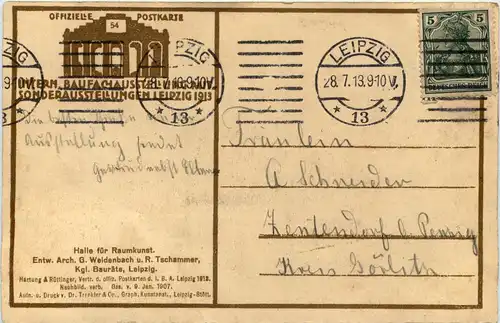 OFFIZIELLE POSTKARTE
54
INTERN. BAUFACHAUSSTELLUNG MIT
SONDERAUSSTELLUNGEN LEIPZIG 1913
LEIPZIG
28.7.13.9-10V.
* 13 *
LEIPZIG
28.7.13.9-10V.
* 13 *
5 5
DEUTSCHES REICH
die besten Grüße von der
Ausstellung sendet
Fräulein
A Schneider
Zentendorf a. Penzig
Kreis Görlitz
Halle für Raumkunst.
Entw. Arch. G. Weidenbach u. R. Tschammer,
Kgl. Bauräte, Leipzig.
Hartung & Rüttinger, Vertr. d. offiz. Postkarten d. I. B. A. Leipzig 1913.
Nachbild. verb. Ges. v. 9. Jan. 1907.
Aufn. u. Druck v. Dr. Trenkler & Co., Graph. Kunstanst., Leipzig-Stött.